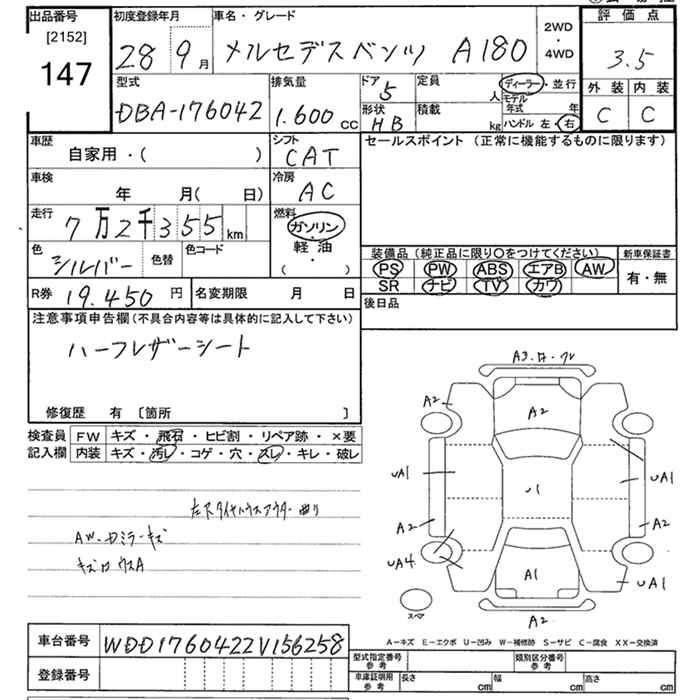 出品番号
[2152]
147
初度登録年月
28 9月
車名・グレード
メルセデスベンツ A180
2WD
・
4WD
評価点
3.5
外装 内装
C C
型式
DBA-176042
排気量
1.600 cc
ドア
5
形状
HB
定員
人
積載
kg
ディーラー・並行
モデル
年式 年
ハンドル 左・右
車歴
自家用・( )
シフト
CAT
セールスポイント (正常に機能するものに限ります)
車検
年 月( 日)
冷房
AC
走行
7万2千355km
燃料
ガソリン
・
軽油
( )
色
シルバー
色替
色コード
装備品(純正品に限り〇をつけてください)
PS PW ABS エアB AW
SR ナビ TV カワ
新車保証書
有・無
R券 19.450円
名変期限 月 日
後日品
注意事項申告欄(不具合内容等は具体的に記入して下さい)
ハーフレザーシート
修復歴 有 [箇所 ]
検査員
記入欄
FW キズ・飛石・ヒビ割・リペア跡・×要
内装 キズ・汚レ・コゲ・穴・スレ・キレ・破レ
A2
A2
UA1
UA1
U1
A2
A2
UA4
A1
UA1
スペア
A2
A-キズ E-エクボ U-凹み W-補修跡 S-サビ C-腐食 XX-交換済
車台番号 WDD1760422V156258
登録番号
型式指定番号
参考
類別区分番号
参考
車庫証明用
参考
長さ cm
幅 cm
高さ cm